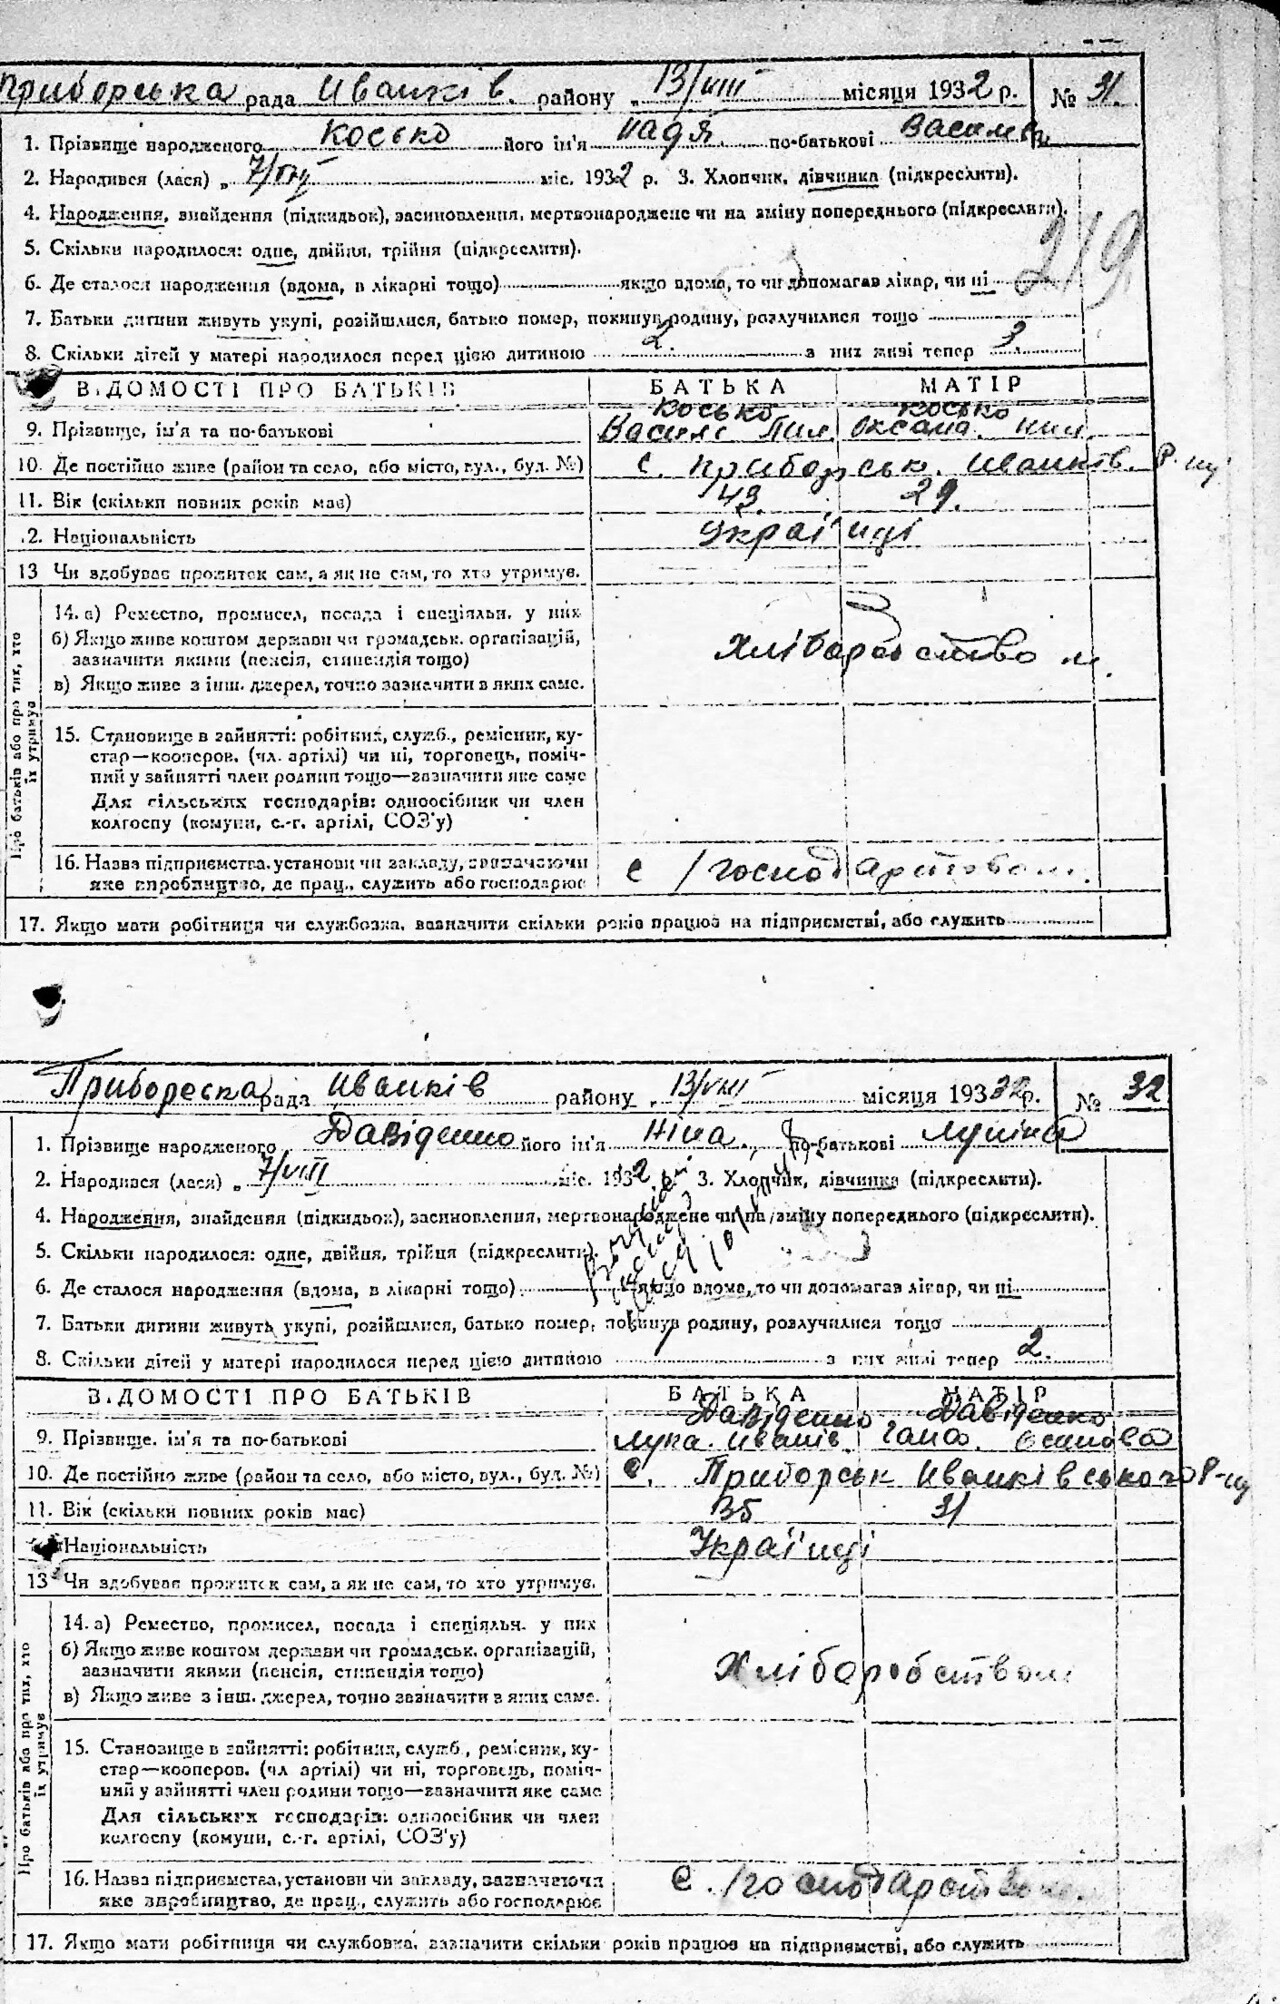 Приборська рада Иванків. району „ 13/VIII місяця 1932 р. № 31.
1. Прізвище народженого Косько його ім'я Надя по-батькові
2. Народився (лася) „ 7/VIII міс. 1932 р. 3. Хлопчик, дівчинка (підкреслити).
4. Народження, знайдення (підкидьок), засиновлення, мертвонароджене чи на зміну попереднього (підкреслити).
219
5. Скільки народилося: одне, двійня, трійня (підкреслити).
6. Де сталося народження (вдома, в лікарні тощо) якщо вдома, то чи допомагав лікар, чи ні
7. Батьки дитини живуть укупі, розійшлися, батько помер, покинув родину, розлучилися тощо
8. Скільки дітей у матері народилося перед цією дитиною 2. з них живі тепер 3
ВІДОМОСТІ ПРО БАТЬКІВ БАТЬКА МАТІР
Косько Косько
9. Прізвище, ім'я та по-батькові Василь Пил. Оксана
10. Де постійно живе (район та село, або місто, вул., буд. №) с. Приборськ. Иванків. Р-ну
11. Вік (скільки повних років має) 43. 29.
12. Національність Українці
13 Чи здобуває прожиток сам, а як не сам, то хто утримує.
Про батьків або про тих, хто їх утримує
14. а) Ремество, промисел, посада і спеціяльн. у них
б) Якщо живе коштом держави чи громадськ. організацій,
зазначити якими (пенсія, стипендія тощо) Хліборобство м.
в) Якщо живе з інш. джерел, точно зазначити в яких саме.
15. Становище в зайнятті: робітник, служб., ремісник, ку-
стар—кооперов. (чл. артілі) чи ні, торговець, поміч-
ний у зайнятті член родини тощо—зазначити яке саме
Для сільських господарів: одноосібник чи член
колгоспу (комуни, с.-г. артілі, СОЗ'у)
16. Назва підприємства, установи чи закладу, зазначаючи
яке виробництво, де прац., служить або господарює с/господарством.
17. Якщо мати робітниця чи службовка, зазначити скільки років працює на підприємстві, або служить
Прибореска рада Иванків району „ 13/VIII місяця 193 32 р. № 32
1. Прізвище народженого Давіденко його ім'я Ніна. по-батькові Лукіна
2. Народився (лася) „ 7/VIII міс. 1932 3. Хлопчик, дівчинка (підкреслити).
4. Народження, знайдення (підкидьок), засиновлення, мертвонароджене чи на зміну попереднього (підкреслити).
5. Скільки народилося: одне, двійня, трійня (підкреслити).
6. Де сталося народження (вдома, в лікарні тощо) якщо вдома, то чи допомагав лікар, чи ні
7. Батьки дитини живуть укупі, розійшлися, батько помер, покинув родину, розлучилися тощо
8. Скільки дітей у матері народилося перед цією дитиною з них живі тепер 2.
ВІДОМОСТІ ПРО БАТЬКІВ БАТЬКА МАТІР
Давіденко Давіденко
9. Прізвище, ім'я та по-батькові Лука Иванів. Ганна. Осипова
10. Де постійно живе (район та село, або місто, вул., буд. №) с. Приборськ Иванківського Р-ну
11. Вік (скільки повних років має) 35 31
Національність Українці
13 Чи здобуває прожиток сам, а як не сам, то хто утримує.
Про батьків або про тих, хто їх утримує
14. а) Ремество, промисел, посада і спеціяльн. у них
б) Якщо живе коштом держави чи громадськ. організацій,
зазначити якими (пенсія, стипендія тощо) Хліборобством
в) Якщо живе з інш. джерел, точно зазначити в яких саме.
15. Становище в зайнятті: робітник, служб., ремісник, ку-
стар—кооперов. (чл артілі) чи ні, торговець, поміч-
ний у зайнятті член родини тощо—зазначити яке саме
Для сільських господарів: одноосібник чи член
колгоспу (комуни, с.-г. артілі, СОЗ'у)
16. Назва підприємства, установи чи закладу, зазначаючи
яке виробництво, де прац., служить або господарює с./господарством.
17. Якщо мати робітниця чи службовка, зазначити скільки років працює на підприємстві, або служить